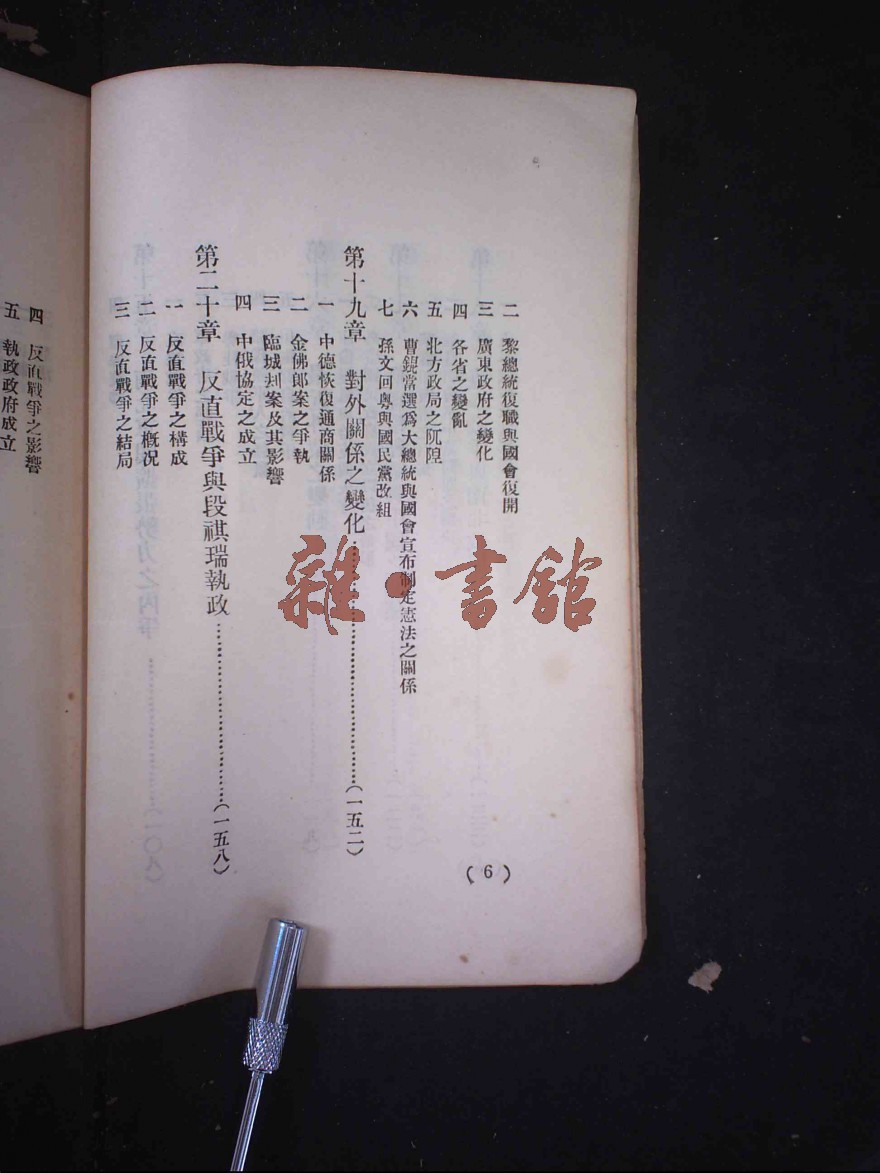 二　黎總統復職與國會復開
三　廣東政府之變化
四　各省之變亂
五　北方政局之阢隉
六　曹錕當選爲大總統與國會宣布制定憲法之關係
七　孫文回粵與國民黨改組
第十九章　對外關係之變化……(一五二)
一　中德恢復通商關係
二　金佛郎案之爭執
三　臨城刦案及其影響
四　中俄協定之成立
第二十章　反直戰爭與段祺瑞執政……(一五八)
一　反直戰爭之構成
二　反直戰爭之概况
三　反直戰爭之結局
(6)
四　反直戰爭之影響
五　執政政府成立
雜·書館